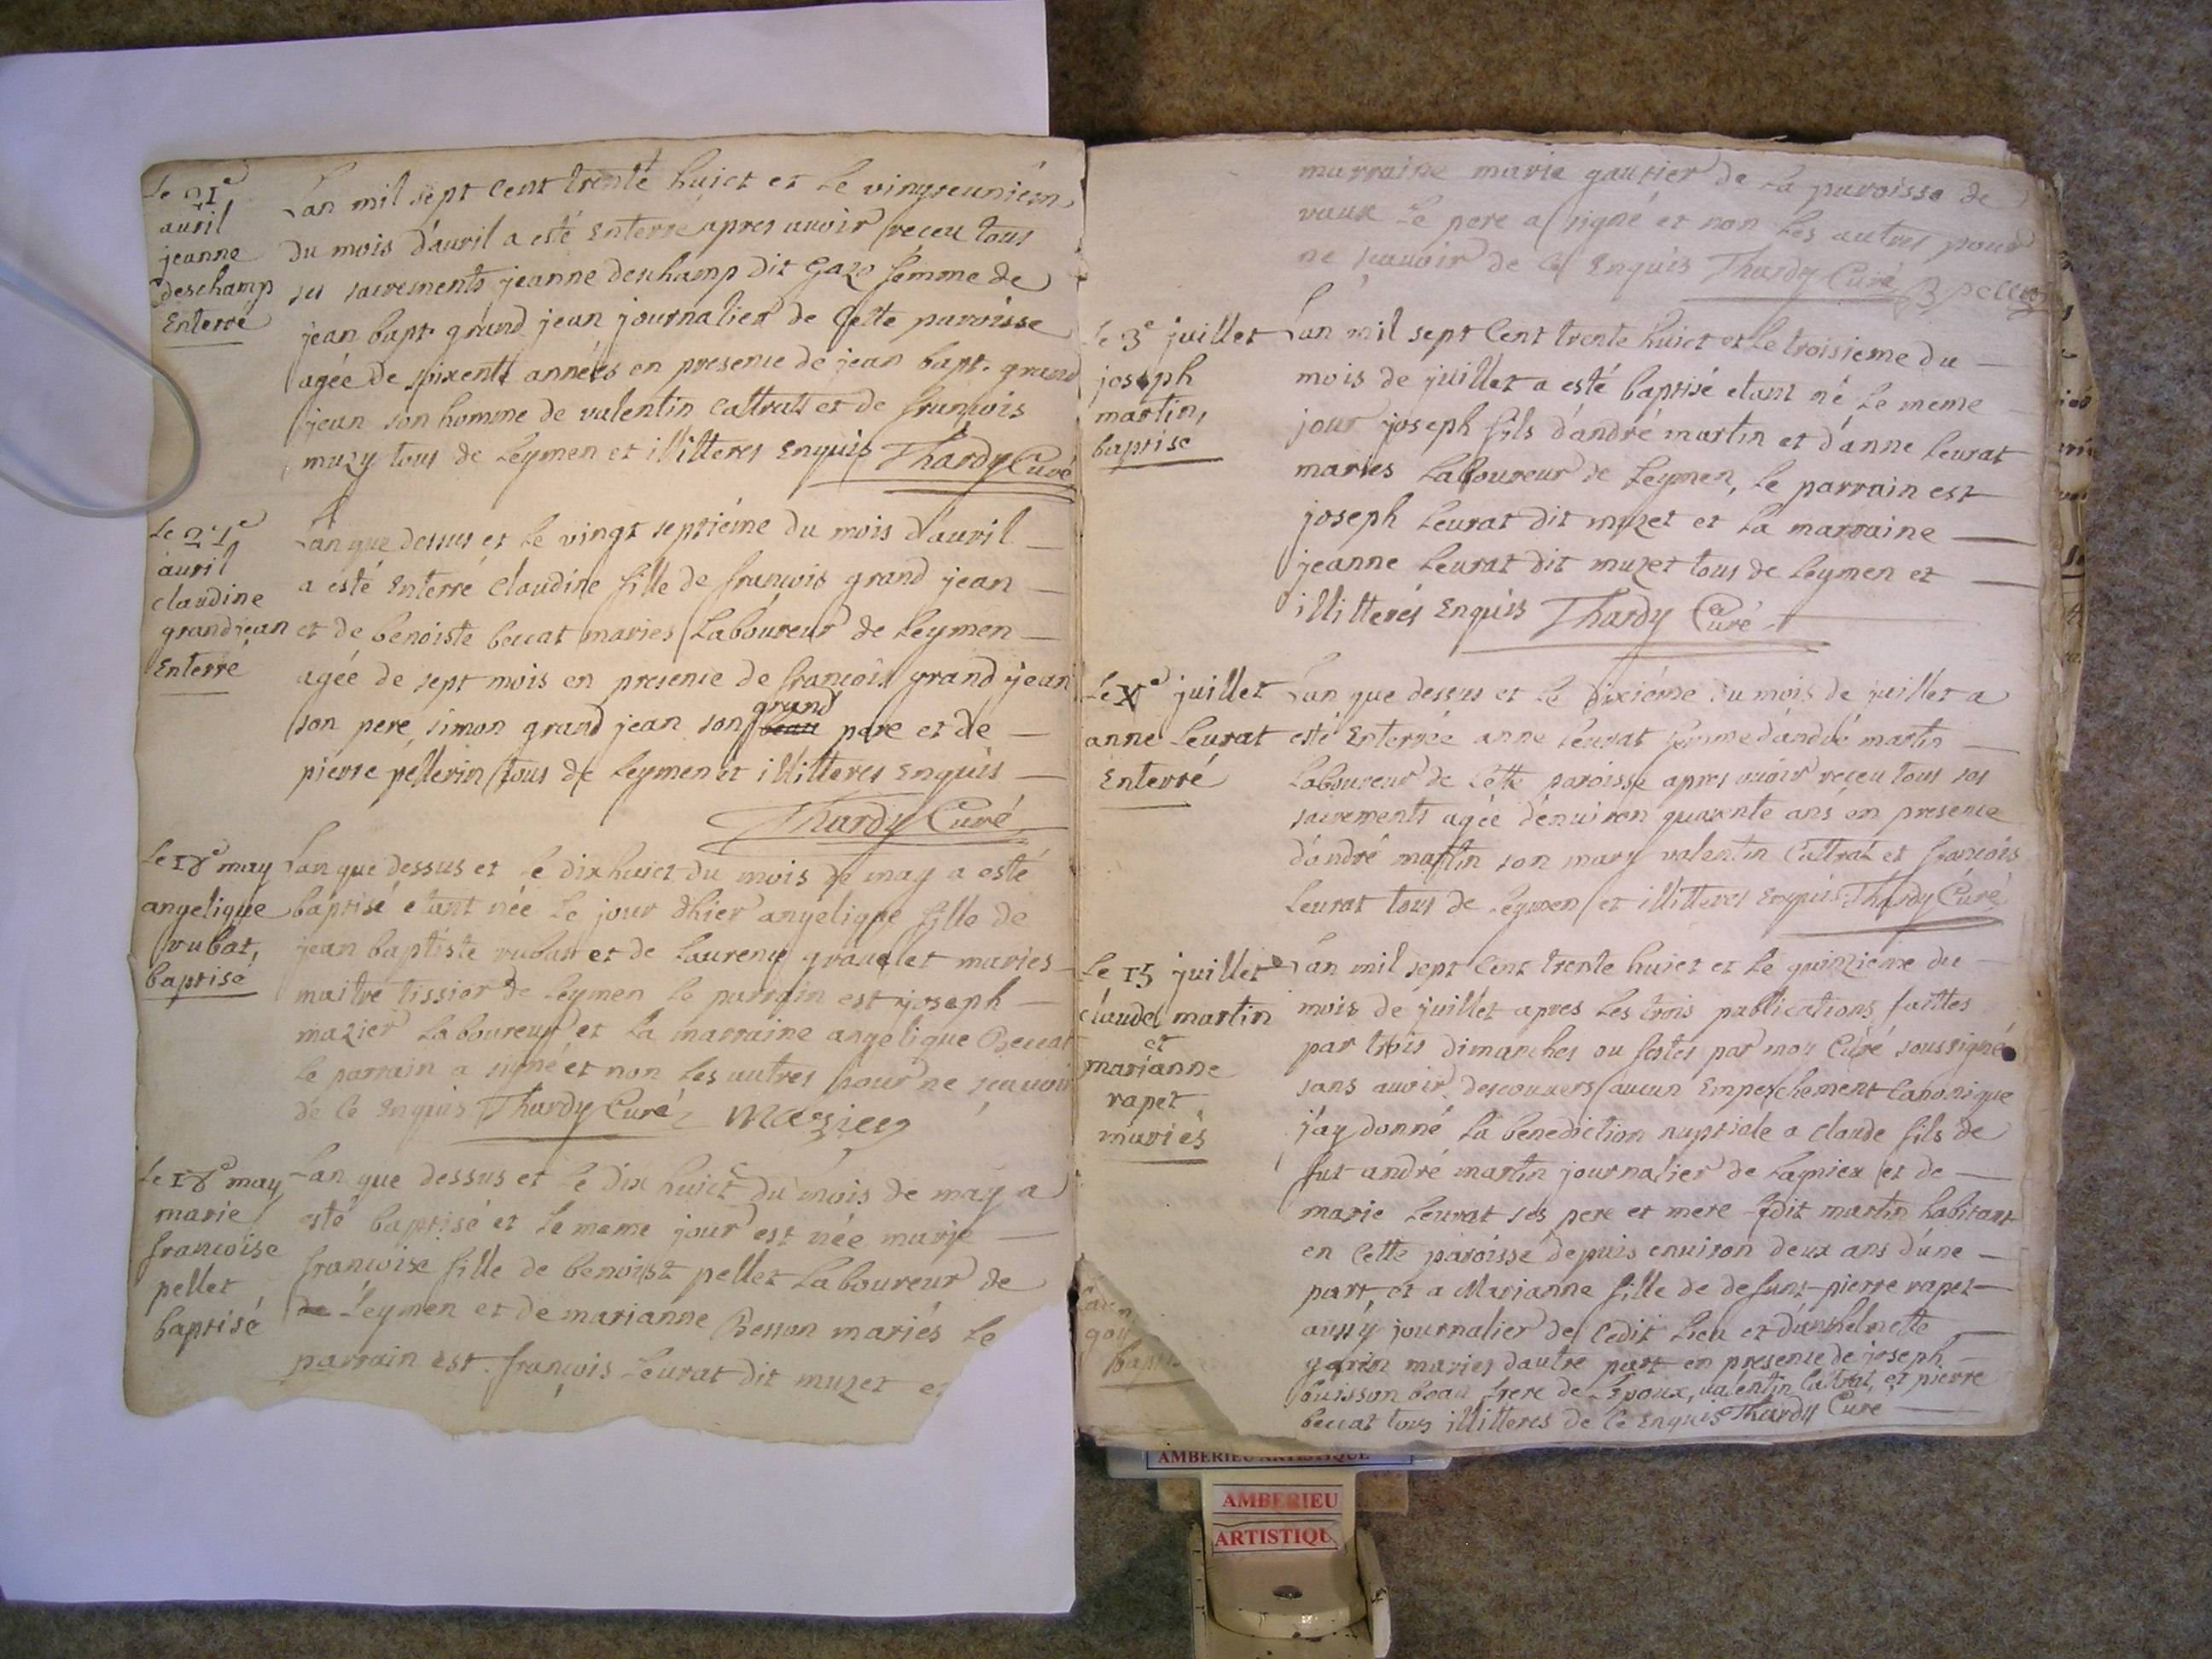 Le 21e
auril
jeanne
deschamp
Enterré
Lan mil sept Cent trente huict et le vingteunièm
du mois d'auril a esté Enterré apres auoir receu tous
ses sacrements jeanne deschamp dit gazo femme de
jean bapt. grand jean journalier de Cette paroisse
agée de soixente années en presence de jean bapt. grand
jean son homme de valentin Cattrat et de françois
muzy tous de Leymen et illitteres Enquis Thardy Curé
Le 27e
auril
claudine
grand jean
Enterré
Lan que dessus et le vingt septiéme du mois d'auril
a esté Enterré Claudine fille de françois grand jean
et de benoiste beccat maries Laboureur de Leymen
agée de sept mois en presence de françois grand jean
grand
son pere, simon grand jean son beau pere et de
pierre pellerin tous de Leymen et illitteres Enquis
Thardy Curé
Le 18e may
angelique
rubat,
baptisé
Lan que dessus et le dixhuict du mois de may a esté
baptisé etant née le jour d'hier angelique fille de
jean baptiste rubat et de Laurenne grauelet maries
maitre tissier de Leymen le parrain est joseph
mazier Laboureur et La marraine angelique Beccat
le parrain a signé et non les autres pour ne sçauoir
de ce Enquis Thardy Curé Mazier
Le 18e may
marie
françoise
pellet
baptisé
Lan que dessus et le dix huict du mois de may a
esté baptisé et le meme jour est née marie
françoise fille de benoist pellet Laboureur de
de Leymen et de marianne Besson mariés le
parrain est françois Leurat dit muzet et
marraine marie gautier de La paroisse de
vaux Le pere a signé et non les autres pour
ne sçauoir de ce Enquis Thardy Curé B pellet
Le 3e juillet
joseph
martin,
baptise
Lan mil sept Cent trente huict et le troisieme du
mois de juillet a esté baptisé etant né le meme
jour joseph fils d'andré martin et d'anne Leurat
maries Laboureur de Leymen, le parrain est
joseph Leurat dit muzet et la marraine
jeanne Leurat dit muzet tous de Leymen et
illitterés Enquis Thardy Curé
Le Xe juillet
anne Leurat
Enterré
Lan que dessus et le dixiéme du mois de juillet a
esté Enterrée anne Leurat femme d'andré martin
Laboureur de Cette paroisse apres auoir receu tous ses
sacrements agée d'enuiron quarente ans en presence
d'andré martin son mary valentin Cattrat et françois
Leurat tous de Leymen et illitteres Enquis Thardy Curé
Le 15 juillet
claude martin
et
marianne
rapet
mariés
Lan mil sept Cent trente huict et le quinzieme du
mois de juillet apres les trois publications faittes
par trois dimanches ou festes par moy Curé soussigné
sans auoir descouuers aucun Empeschement Canonique
j'ay donné la benediction nuptiale a claude fils de
fut andré martin journalier de Lagnieu et de
marie Leurat ses pere et mere Ledit martin habitant
en Cette paroisse depuis enuiron deux ans d'une
part, et a Marianne fille de defunt pierre rapet
aussy journalier de Cedit Lieu et d'anthelmette
garin maries dautre part en presence de joseph
buisson beau frere de L'Epoux, valentin Catrat, et pierre
beccat tous illitteres de ce Enquis Thardy Curé
goy
AMBERIEU ARTISTIQUE
AMBERIEU
ARTISTIQU